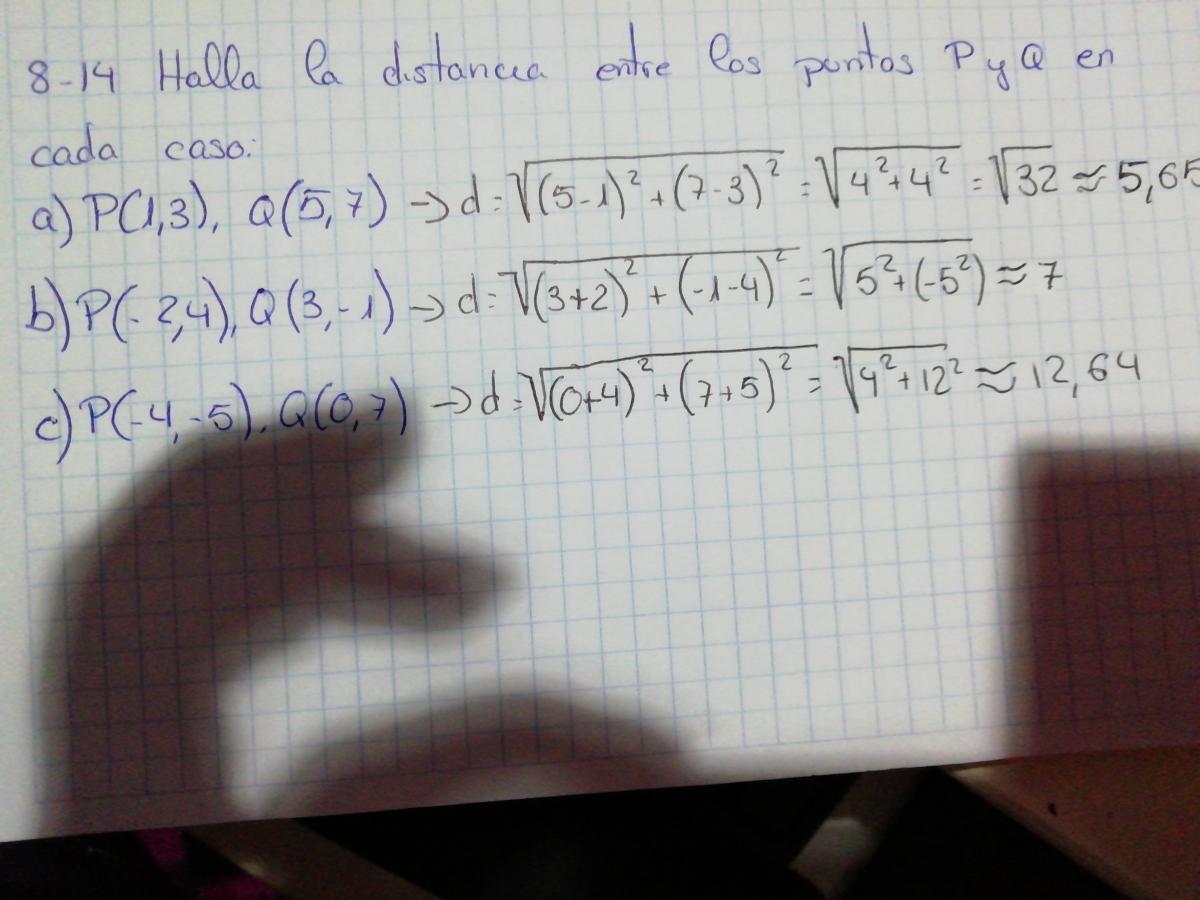 8-14 Halla la distancia entre los puntos P y Q en
cada caso:
a) P(1,3), Q(5,7) → d = √((5-1)² + (7-3)²) = √(4² + 4²) = √32 ≈ 5,65
b) P(-2,4), Q(3,-1) → d = √((3+2)² + (-1-4)²) = √(5² + (-5²)) ≈ 7
c) P(-4,-5), Q(0,7) → d = √((0+4)² + (7+5)²) = √(4² + 12²) ≈ 12,64